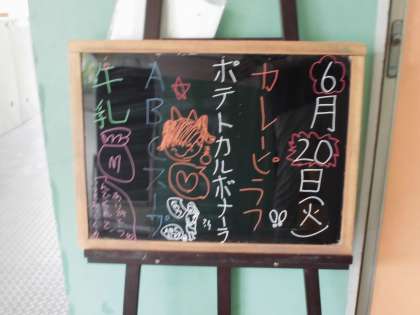 6月20日(火)
カレーピラフ
ポテトカルボナーラ
ABCスープ
牛乳
M